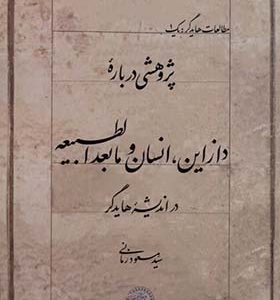 مطالعات هایدگر: یک ۱
پژوهشی درباره‌ٔ
دازاین، انسان و مابعدالطبیعه
در اندیشهٔ هایدگر
سید مسعود زمانی